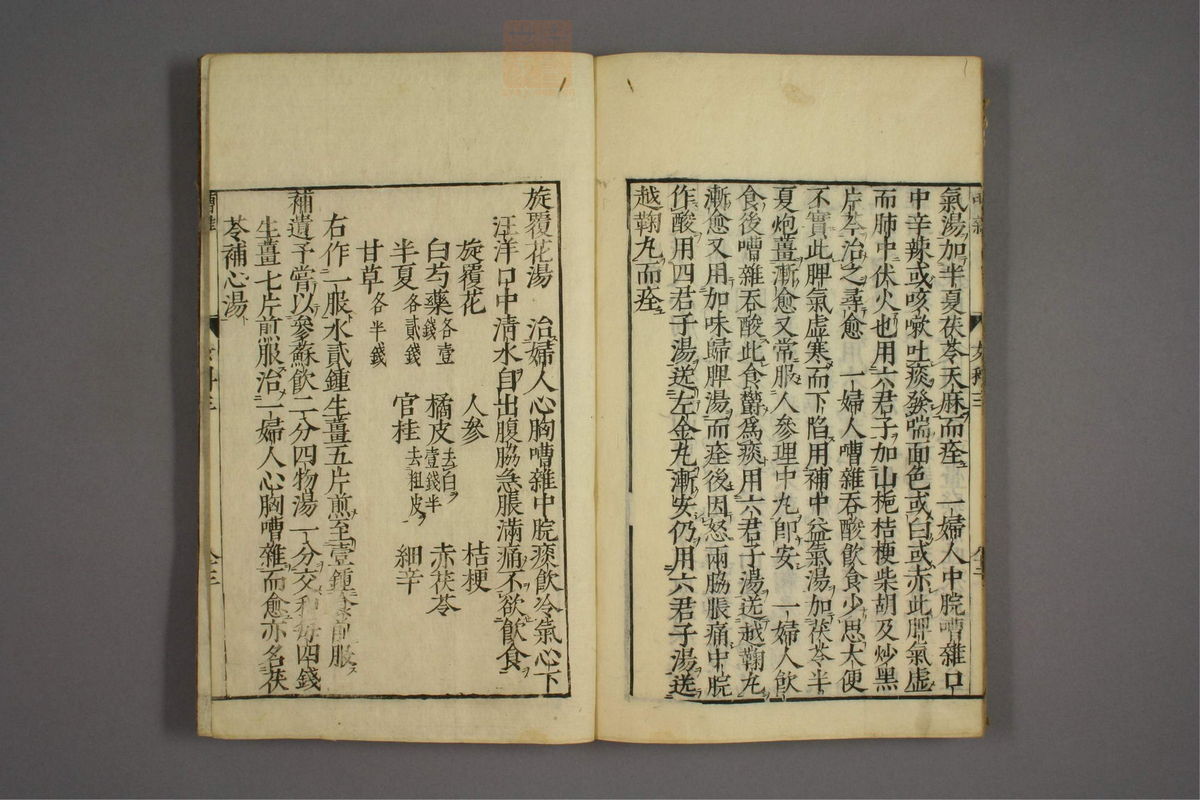 氣湯加半夏茯苓天麻而痊 一婦人中脘嘈雜口
中辛辣或咳嗽吐痰發喘面色或白或赤此脾氣虛
而肺中伏火也用六君子加山梔桔梗柴胡及炒黑
片芩治之尋愈 一婦人嘈雜吞酸飲食少思大便
不實此脾氣虛寒而下陷用補中益氣湯加茯苓半
夏炮薑漸愈又常服人參理中丸即安 一婦人飲
食後嘈雜吞酸此食鬱為痰用六君子湯送越鞠丸
漸愈又用加味歸脾湯而痊後因怒兩脇脹痛中脘
作酸用四君子湯送左金丸漸安仍用六君子湯送
越鞠丸而痊
旋覆花湯 治婦人心胸嘈雜中脘痰飲冷氣心下
汪洋口中清水自出腹脇急脹滿痛不欲飲食
旋覆花 人參 桔梗
白芍藥各壹錢 橘皮去白壹錢半 赤茯苓
半夏各貳錢 官桂去粗皮 細辛
甘草各半錢
右作一服水貳鍾生薑五片煎至壹鍾食前服
補遺子嘗以參蘇飲二分四物湯一分交和每四錢
生薑七片煎服治一婦人心胸嘈雜而愈亦名茯
苓補心湯